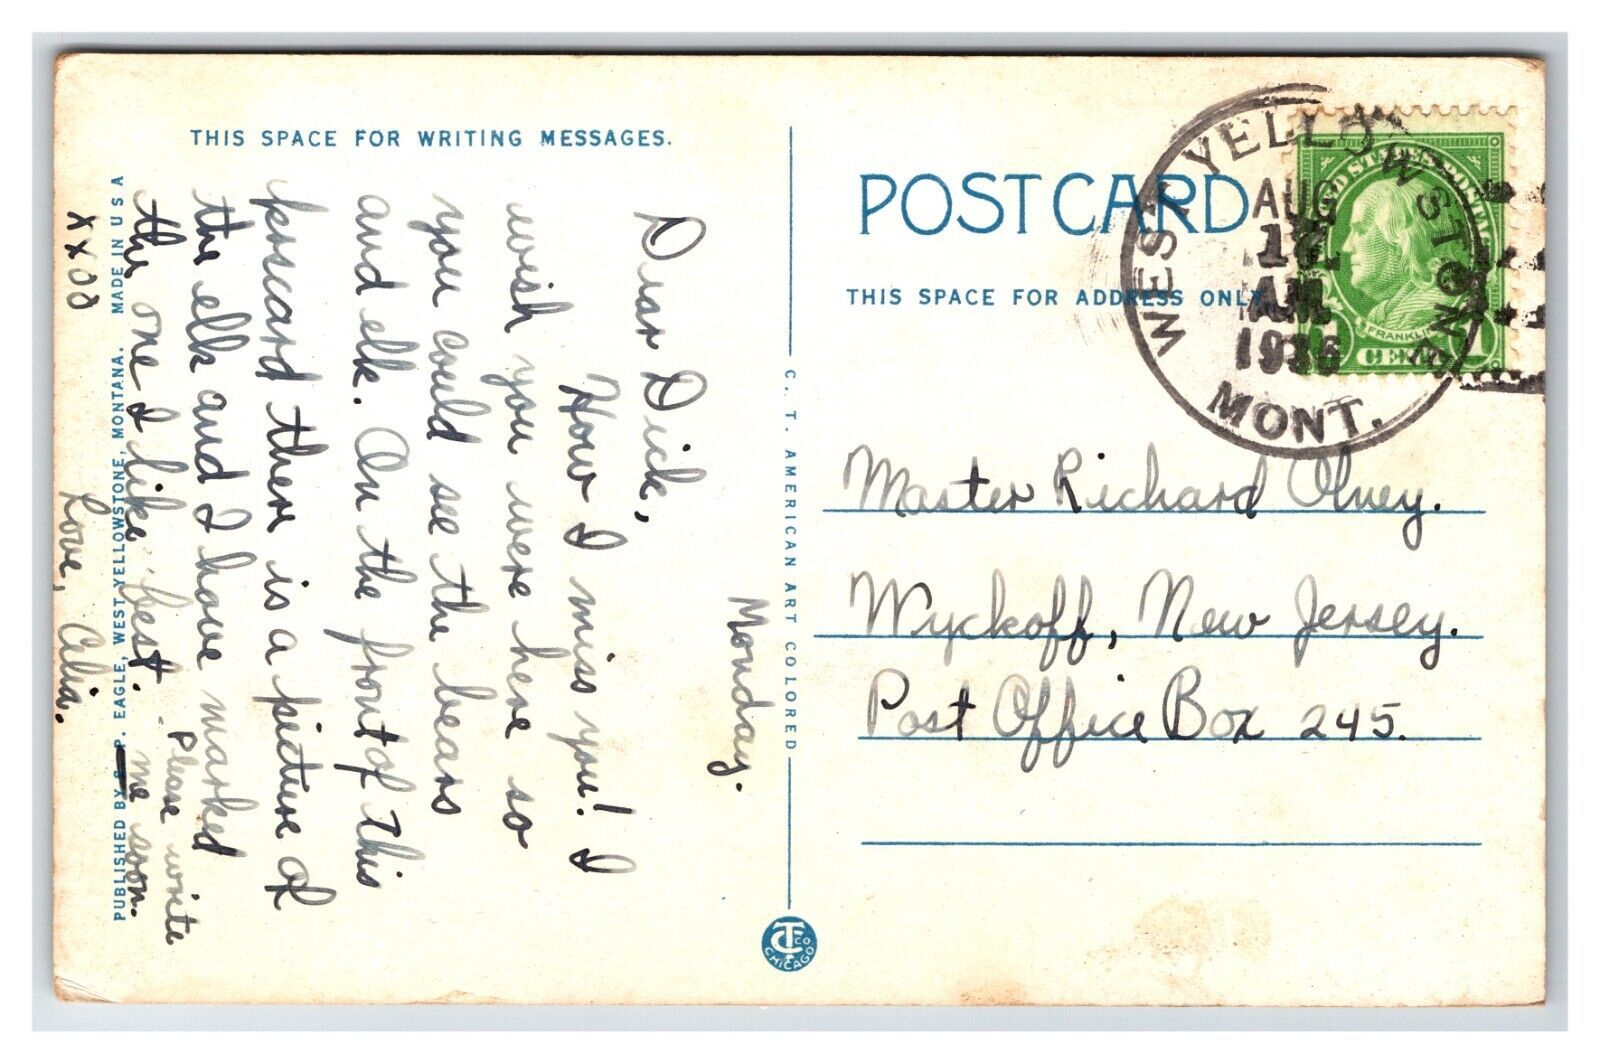 THIS SPACE FOR WRITING MESSAGES.
Monday.
Dear Dick,
How I miss you! I
wish you were here so
you could see the bears
and elk. On the front of this
postcard there is a picture of
the elk and I have marked
the one I like best. Please write
me soon.
Love, Celia.
xxoo
PUBLISHED BY P. EAGLE, WEST YELLOWSTONE, MONTANA. MADE IN U S A
C. T. AMERICAN ART COLORED
CT CO CHICAGO
POST CARD
THIS SPACE FOR ADDRESS ONLY.
WEST YELLOWSTONE
AUG
AM
1936
MONT.
UNITED STATES POSTAGE
FRANKLIN
1 CENT 1
Master Richard Olney.
Wyckoff, New Jersey.
Post Office Box 245.